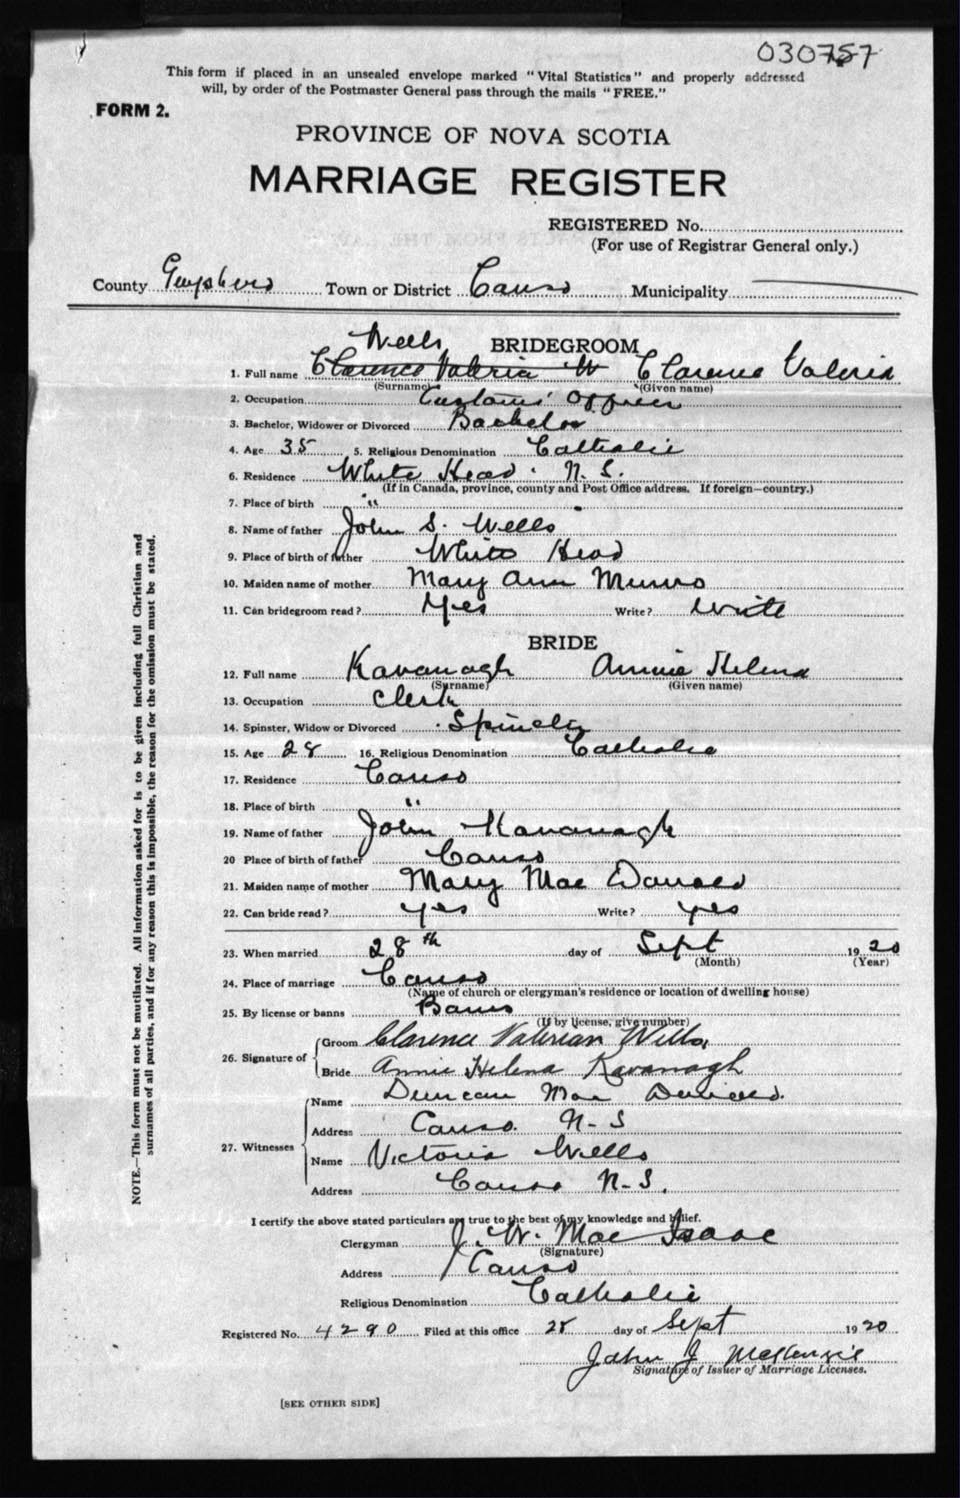 030757
This form if placed in an unsealed envelope marked "Vital Statistics" and properly addressed
will, by order of the Postmaster General pass through the mails "FREE."
FORM 2.
PROVINCE OF NOVA SCOTIA
MARRIAGE REGISTER
REGISTERED No.
(For use of Registrar General only.)
County Guysboro Town or District Canso Municipality
BRIDEGROOM
Wells
1. Full name Clarence Valeria W Clarence Valeria
(Surname) (Given name)
2. Occupation Customs' Officer
3. Bachelor, Widower or Divorced Bachelor
4. Age 35 5. Religious Denomination Catholic
6. Residence White Head. N. S.
(If in Canada, province, county and Post Office address. If foreign—country.)
7. Place of birth "
8. Name of father John S. Wells
9. Place of birth of father White Head
10. Maiden name of mother Mary Ann Munro
11. Can bridegroom read? Yes Write? write
BRIDE
12. Full name Kavanagh Annie Helena
(Surname) (Given name)
13. Occupation Clerk
14. Spinster, Widow or Divorced
15. Age 28 16. Religious Denomination Catholic
17. Residence Canso
18. Place of birth "
19. Name of father John Kavanagh
20 Place of birth of father Canso
21. Maiden name of mother Mary Mac Donald
22. Can bride read? yes Write? yes
23. When married 28th day of Sept 1920
(Month) (Year)
24. Place of marriage Canso
(Name of church or clergyman's residence or location of dwelling house)
25. By license or banns Banns
(If by license, give number)
26. Signature of
Groom Clarence Valerian Wells
Bride Annie Helena Kavanagh
27. Witnesses
Name Duncan Mac Donald.
Address Canso. N-S
Name Victoria Wells
Address Canso N-S.
I certify the above stated particulars are true to the best of my knowledge and belief.
Clergyman J. W. Mac Isaac
(Signature)
Address Canso
Religious Denomination Catholic
Registered No. 4290 Filed at this office 28 day of Sept 1920
John J McKenzie
Signature of Issuer of Marriage Licenses.
[SEE OTHER SIDE]
NOTE.—This form must not be mutilated. All information asked for is to be given including full Christian and
surnames of all parties, and if for any reason this is impossible, the reason for the omission must be stated.